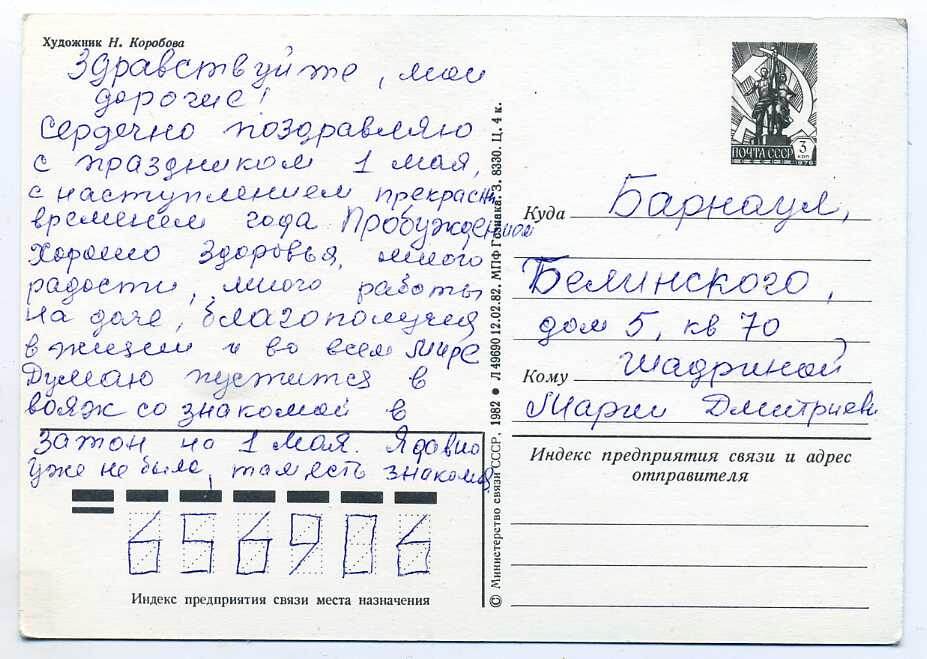 Художник Н. Коробова
Здравствуйте, мои
дорогие!
Сердечно поздравляю
с праздником 1 мая,
с наступлением прекрасн
временем года Пробуждением
Хорошо здоровья, много
радости, много работы
на даче, благополучия
в жизни и во всем мире
Думаю пустится в
вояж со знакомой в
Затон на 1 мая. Я давно
уже не была, там есть знакомая
656906
Индекс предприятия связи места назначения
© Министерство связи СССР, 1982 ● Л 49690 12.02.82. МПФ Гознака. З. 8330. Ц. 4 к.
ПОЧТА СССР 3 КОП
1976
Куда Барнаул,
Белинского,
дом 5, кв 70
Кому Шадриной
Марии Дмитриевн
Индекс предприятия связи и адрес
отправителя